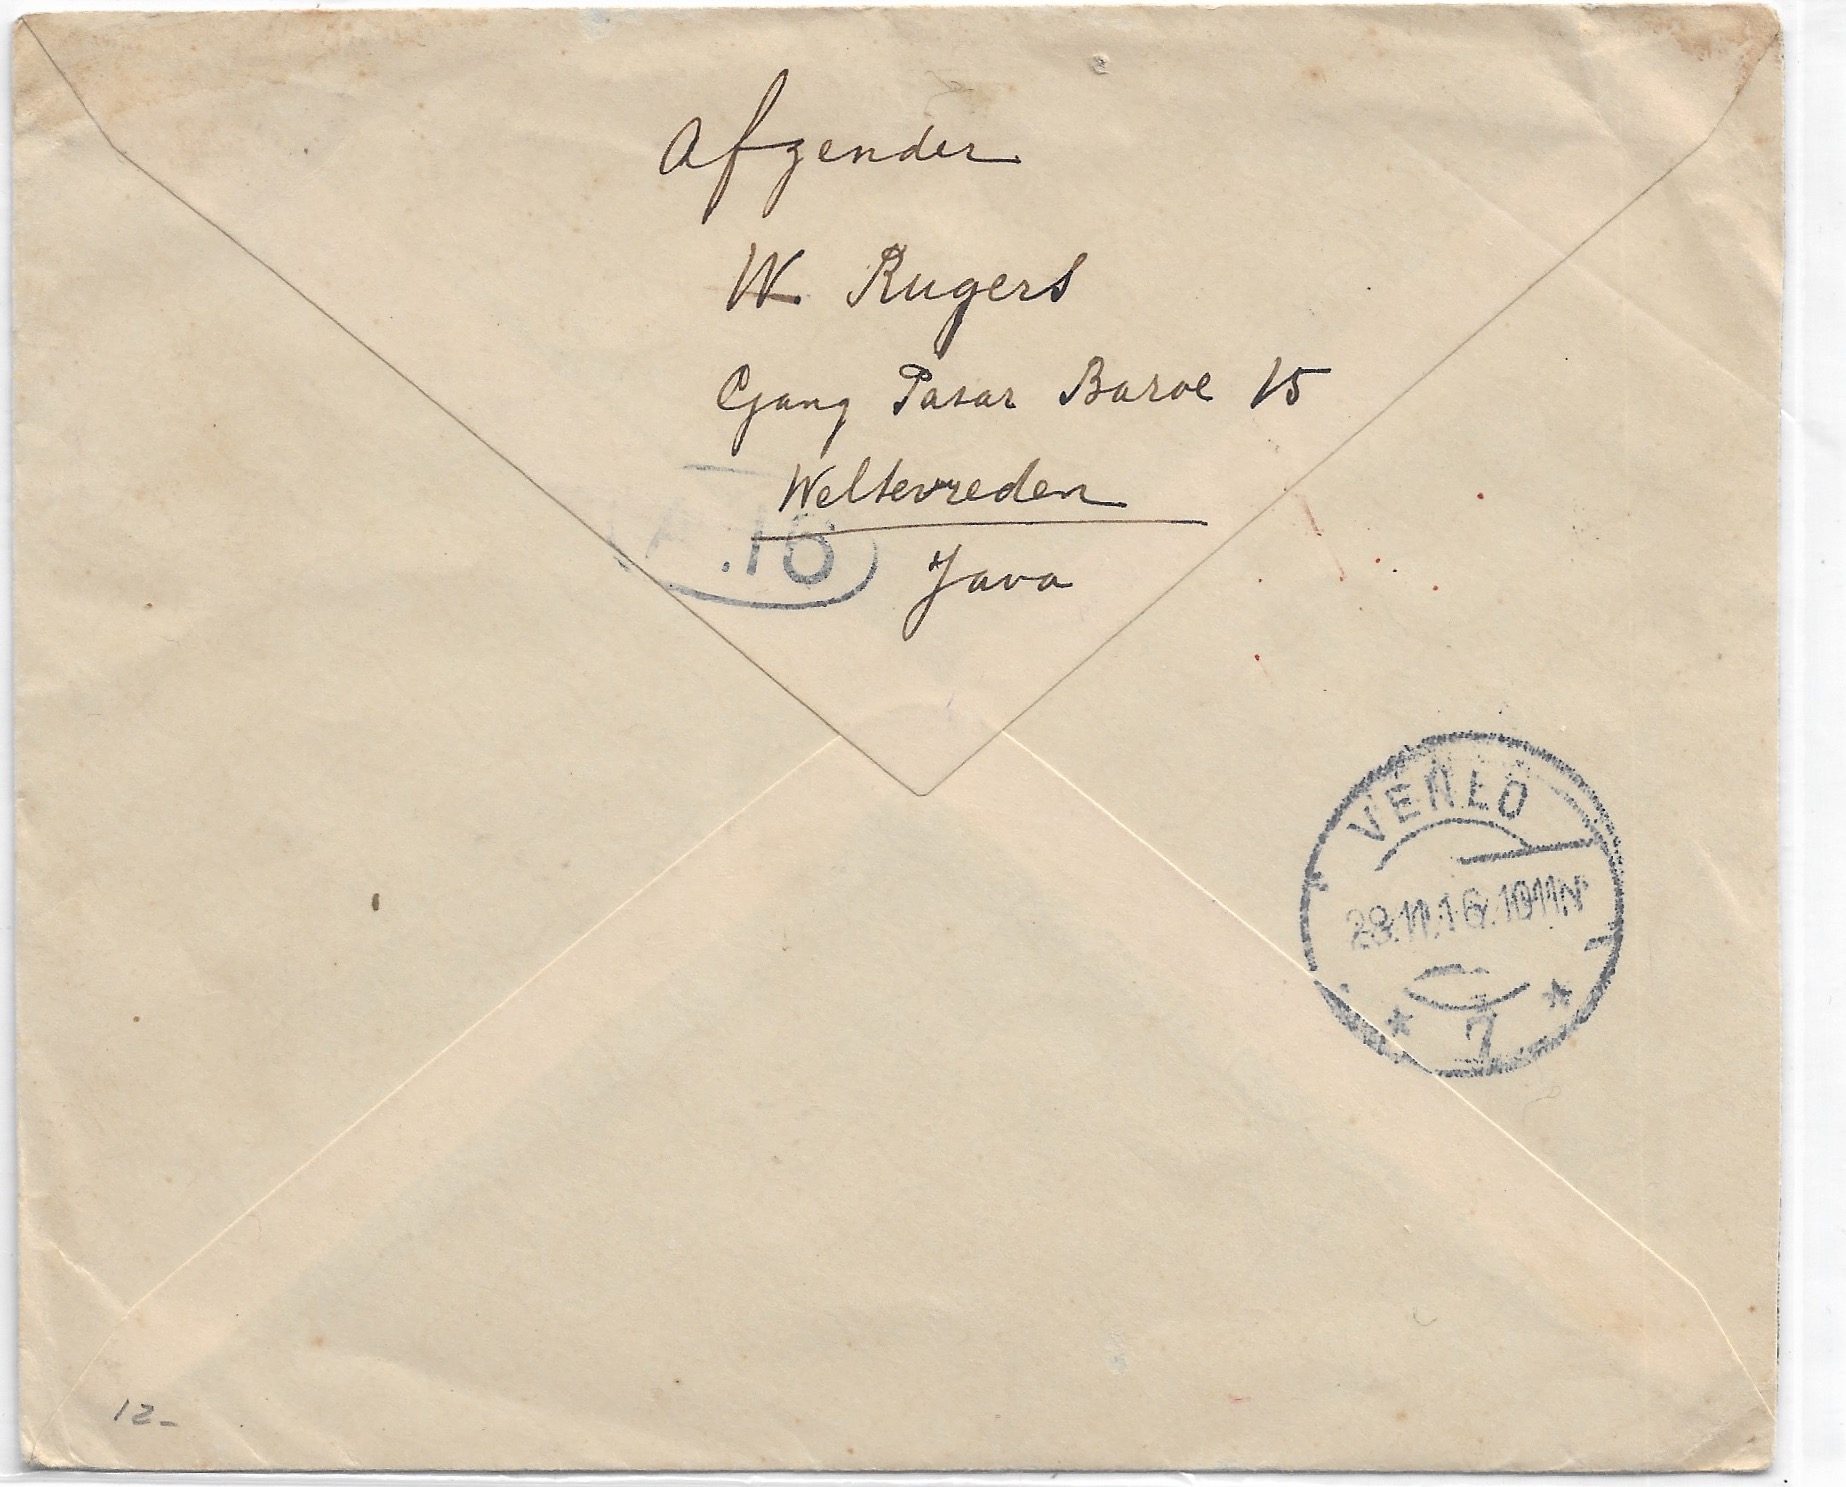 Afzender
W. Rugers
Gang Pasar Baroe 15
Weltevreden
Java
.16
VENLO
28.11.16. 10-11N
7
12-